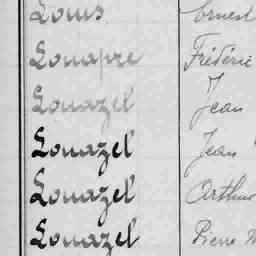 Louis Ernest
Louapre Frédéric
Louazel Jean
Louazel Jean
Louazel Arthur
Louazel Pierre M